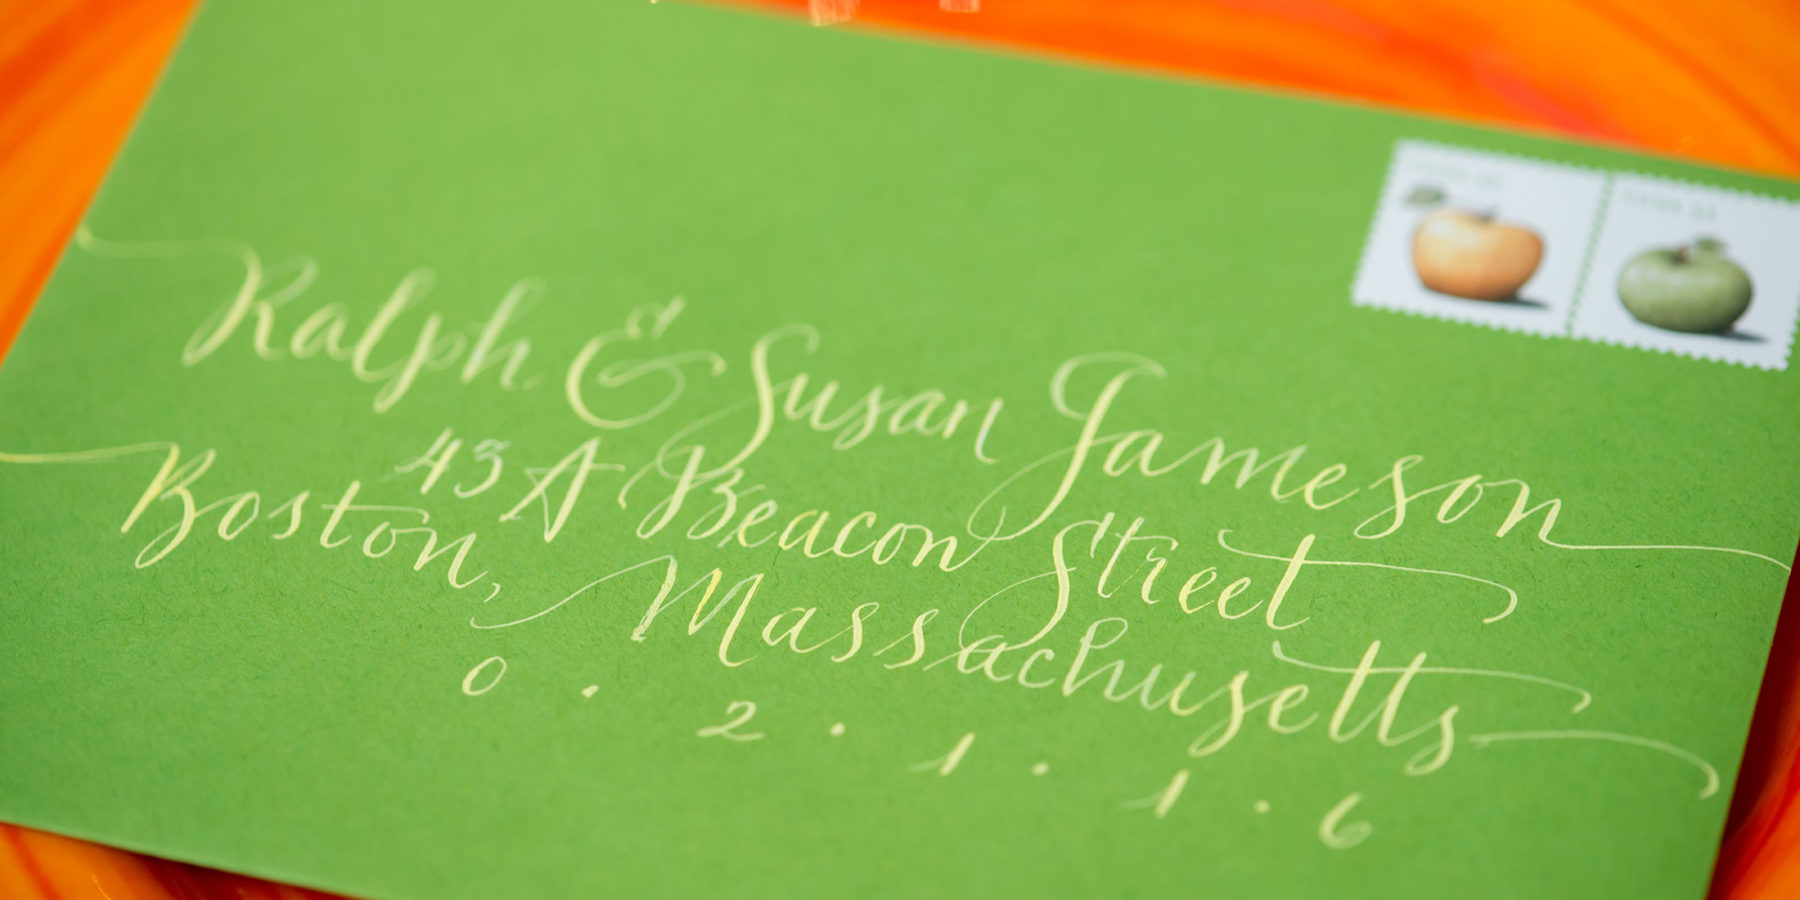 Ralph & Susan Jameson
43 A Beacon Street
Boston, Massachusetts
0 . 2 . 1 . 1 . 6